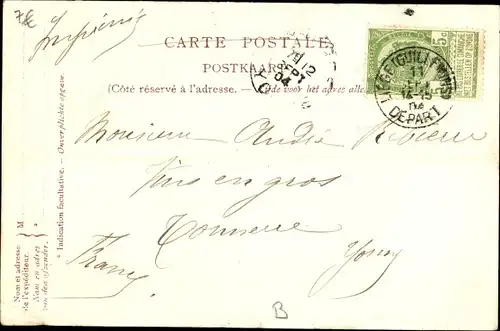 7€
Imprimé
CARTE POSTALE
POSTKAART
(Côté réservé à l'adresse. — Zijde voor het adres alleen
12
SEPT
04
LIEGE (GUILLEMINS)
11
SEPT
04
DEPART
5c
5c
Monsieur André Rivière
Vins en gros
Tonnerre
France Yonne
B
Nom et adresse de l'expéditeur.
Naam en adres van den afzender.
M
* Indication facultative. — Onverplichte opgave.